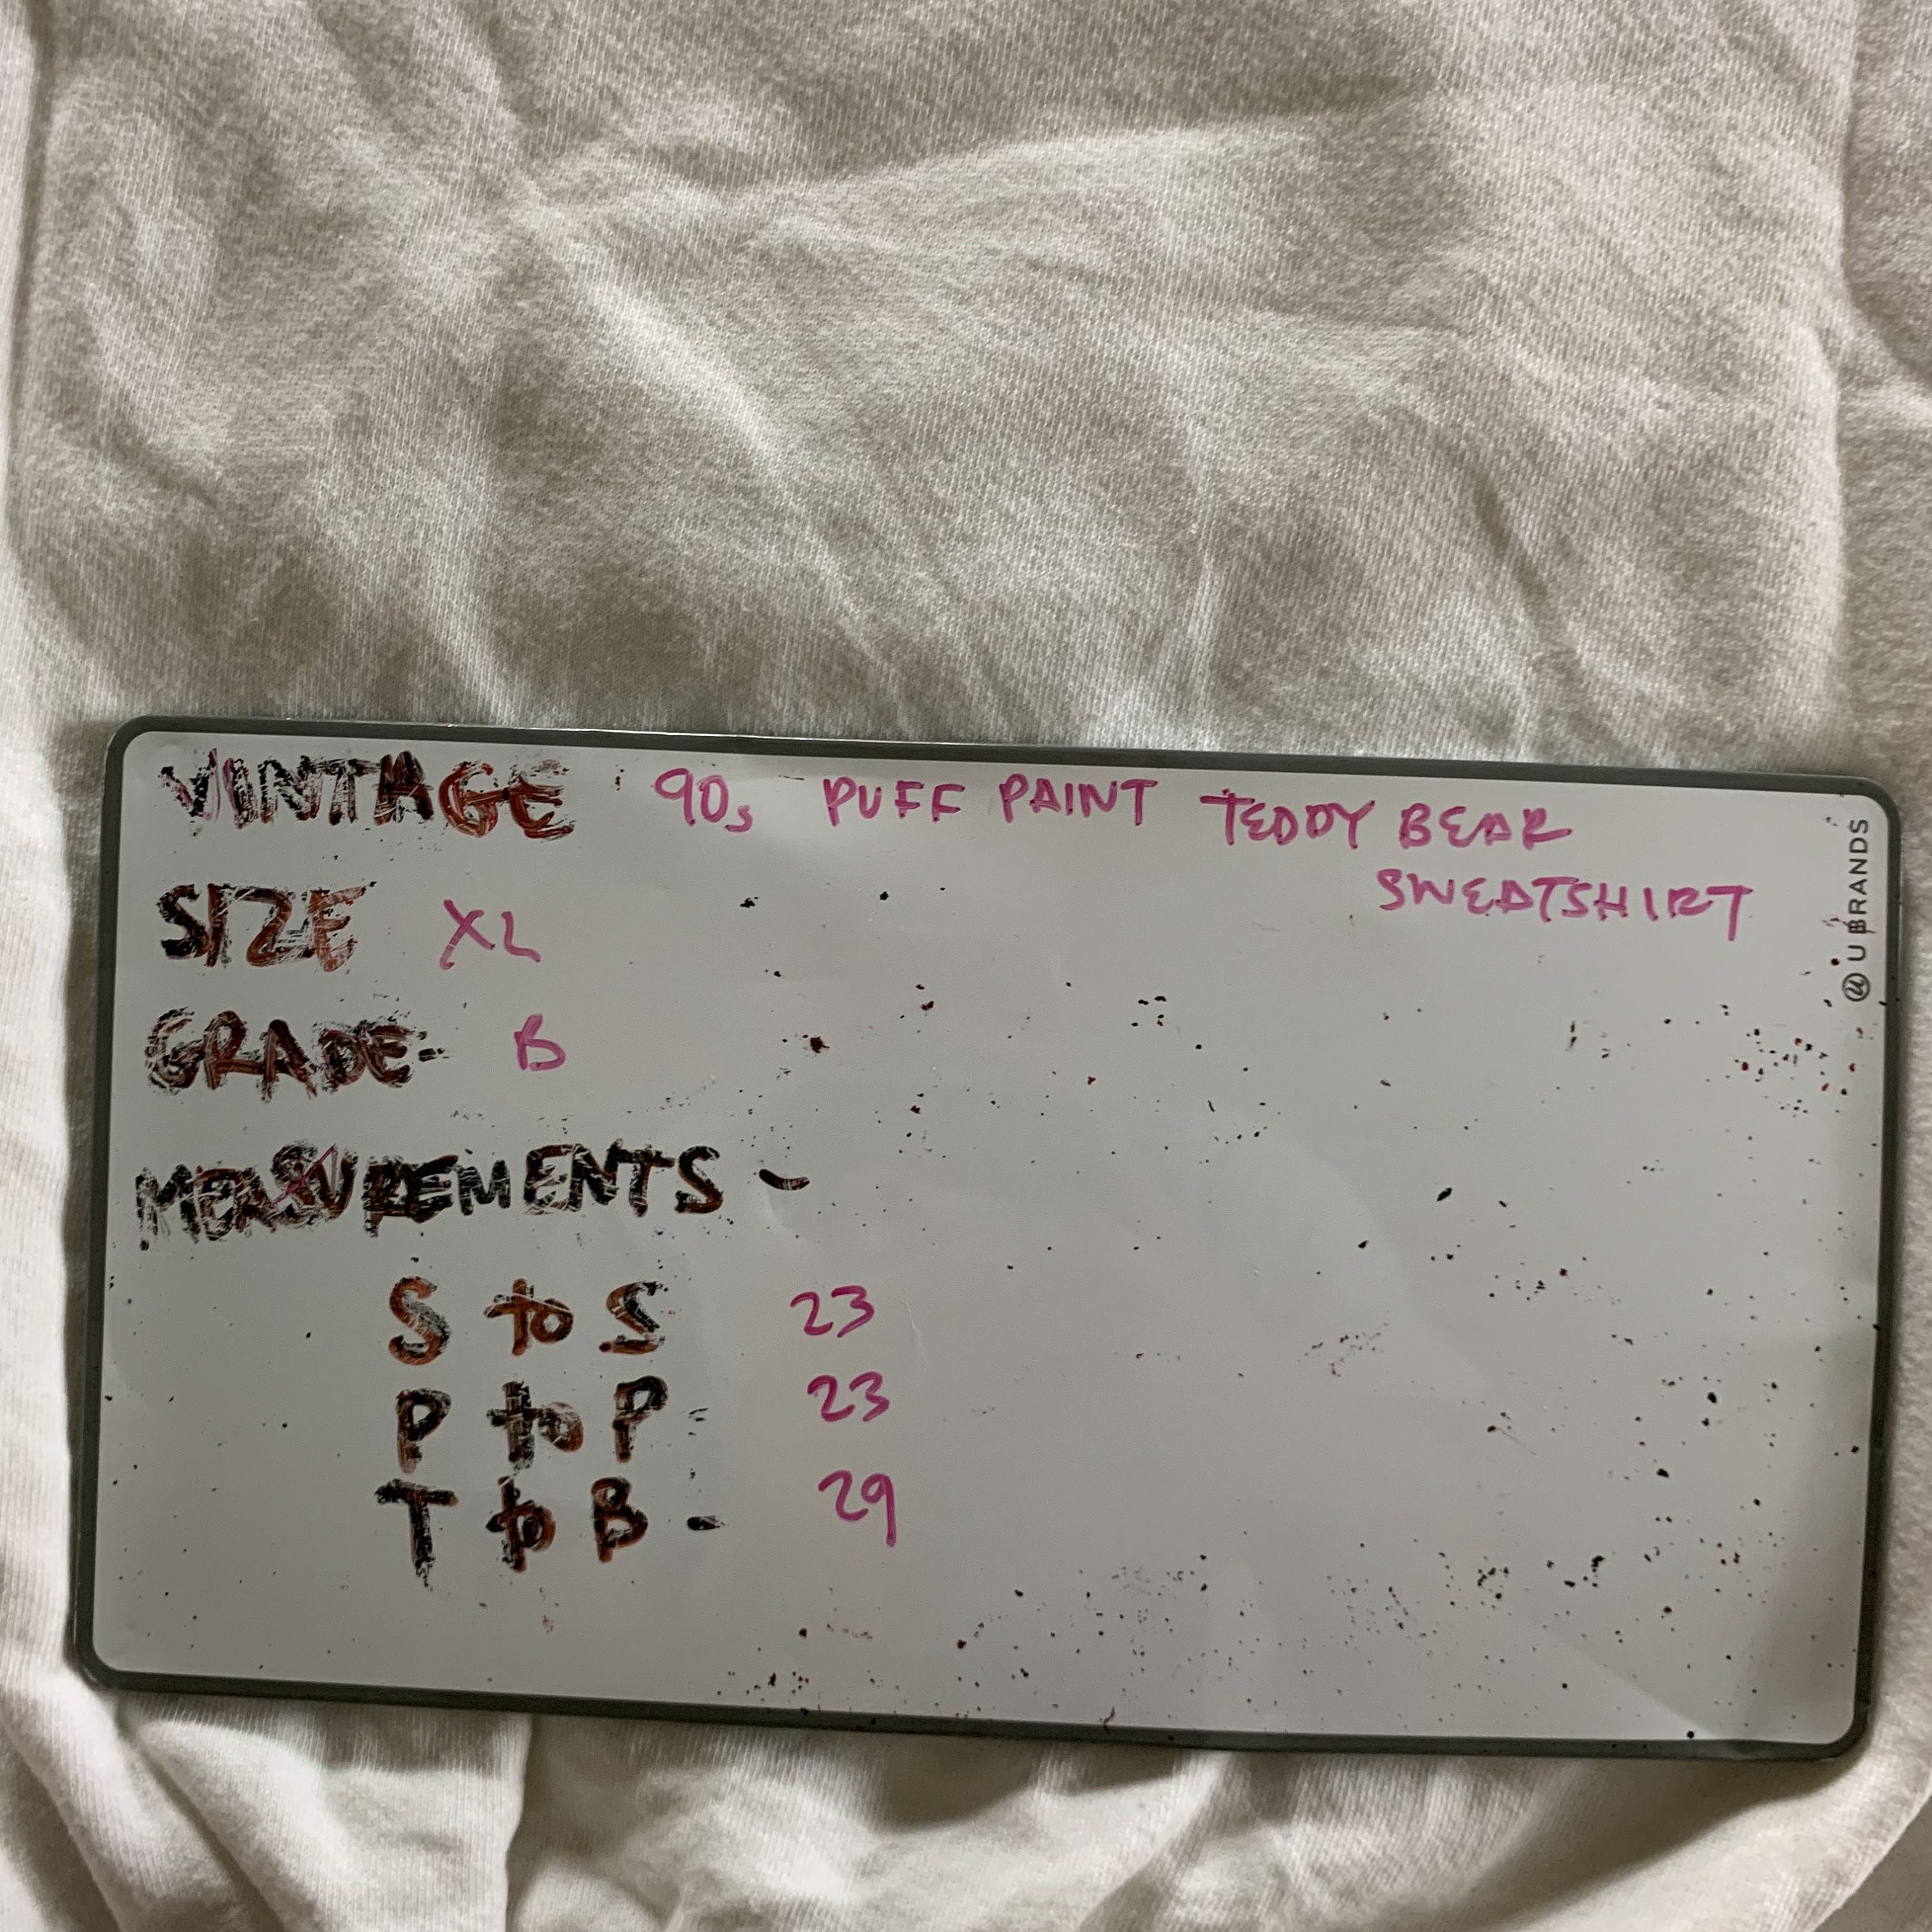 VINTAGE 90s PUFF PAINT TEDDY BEAR
SWEATSHIRT
SIZE XL
GRADE- B
MEASUREMENTS -
S to S 23
P to P - 23
T to B - 29
U BRANDS